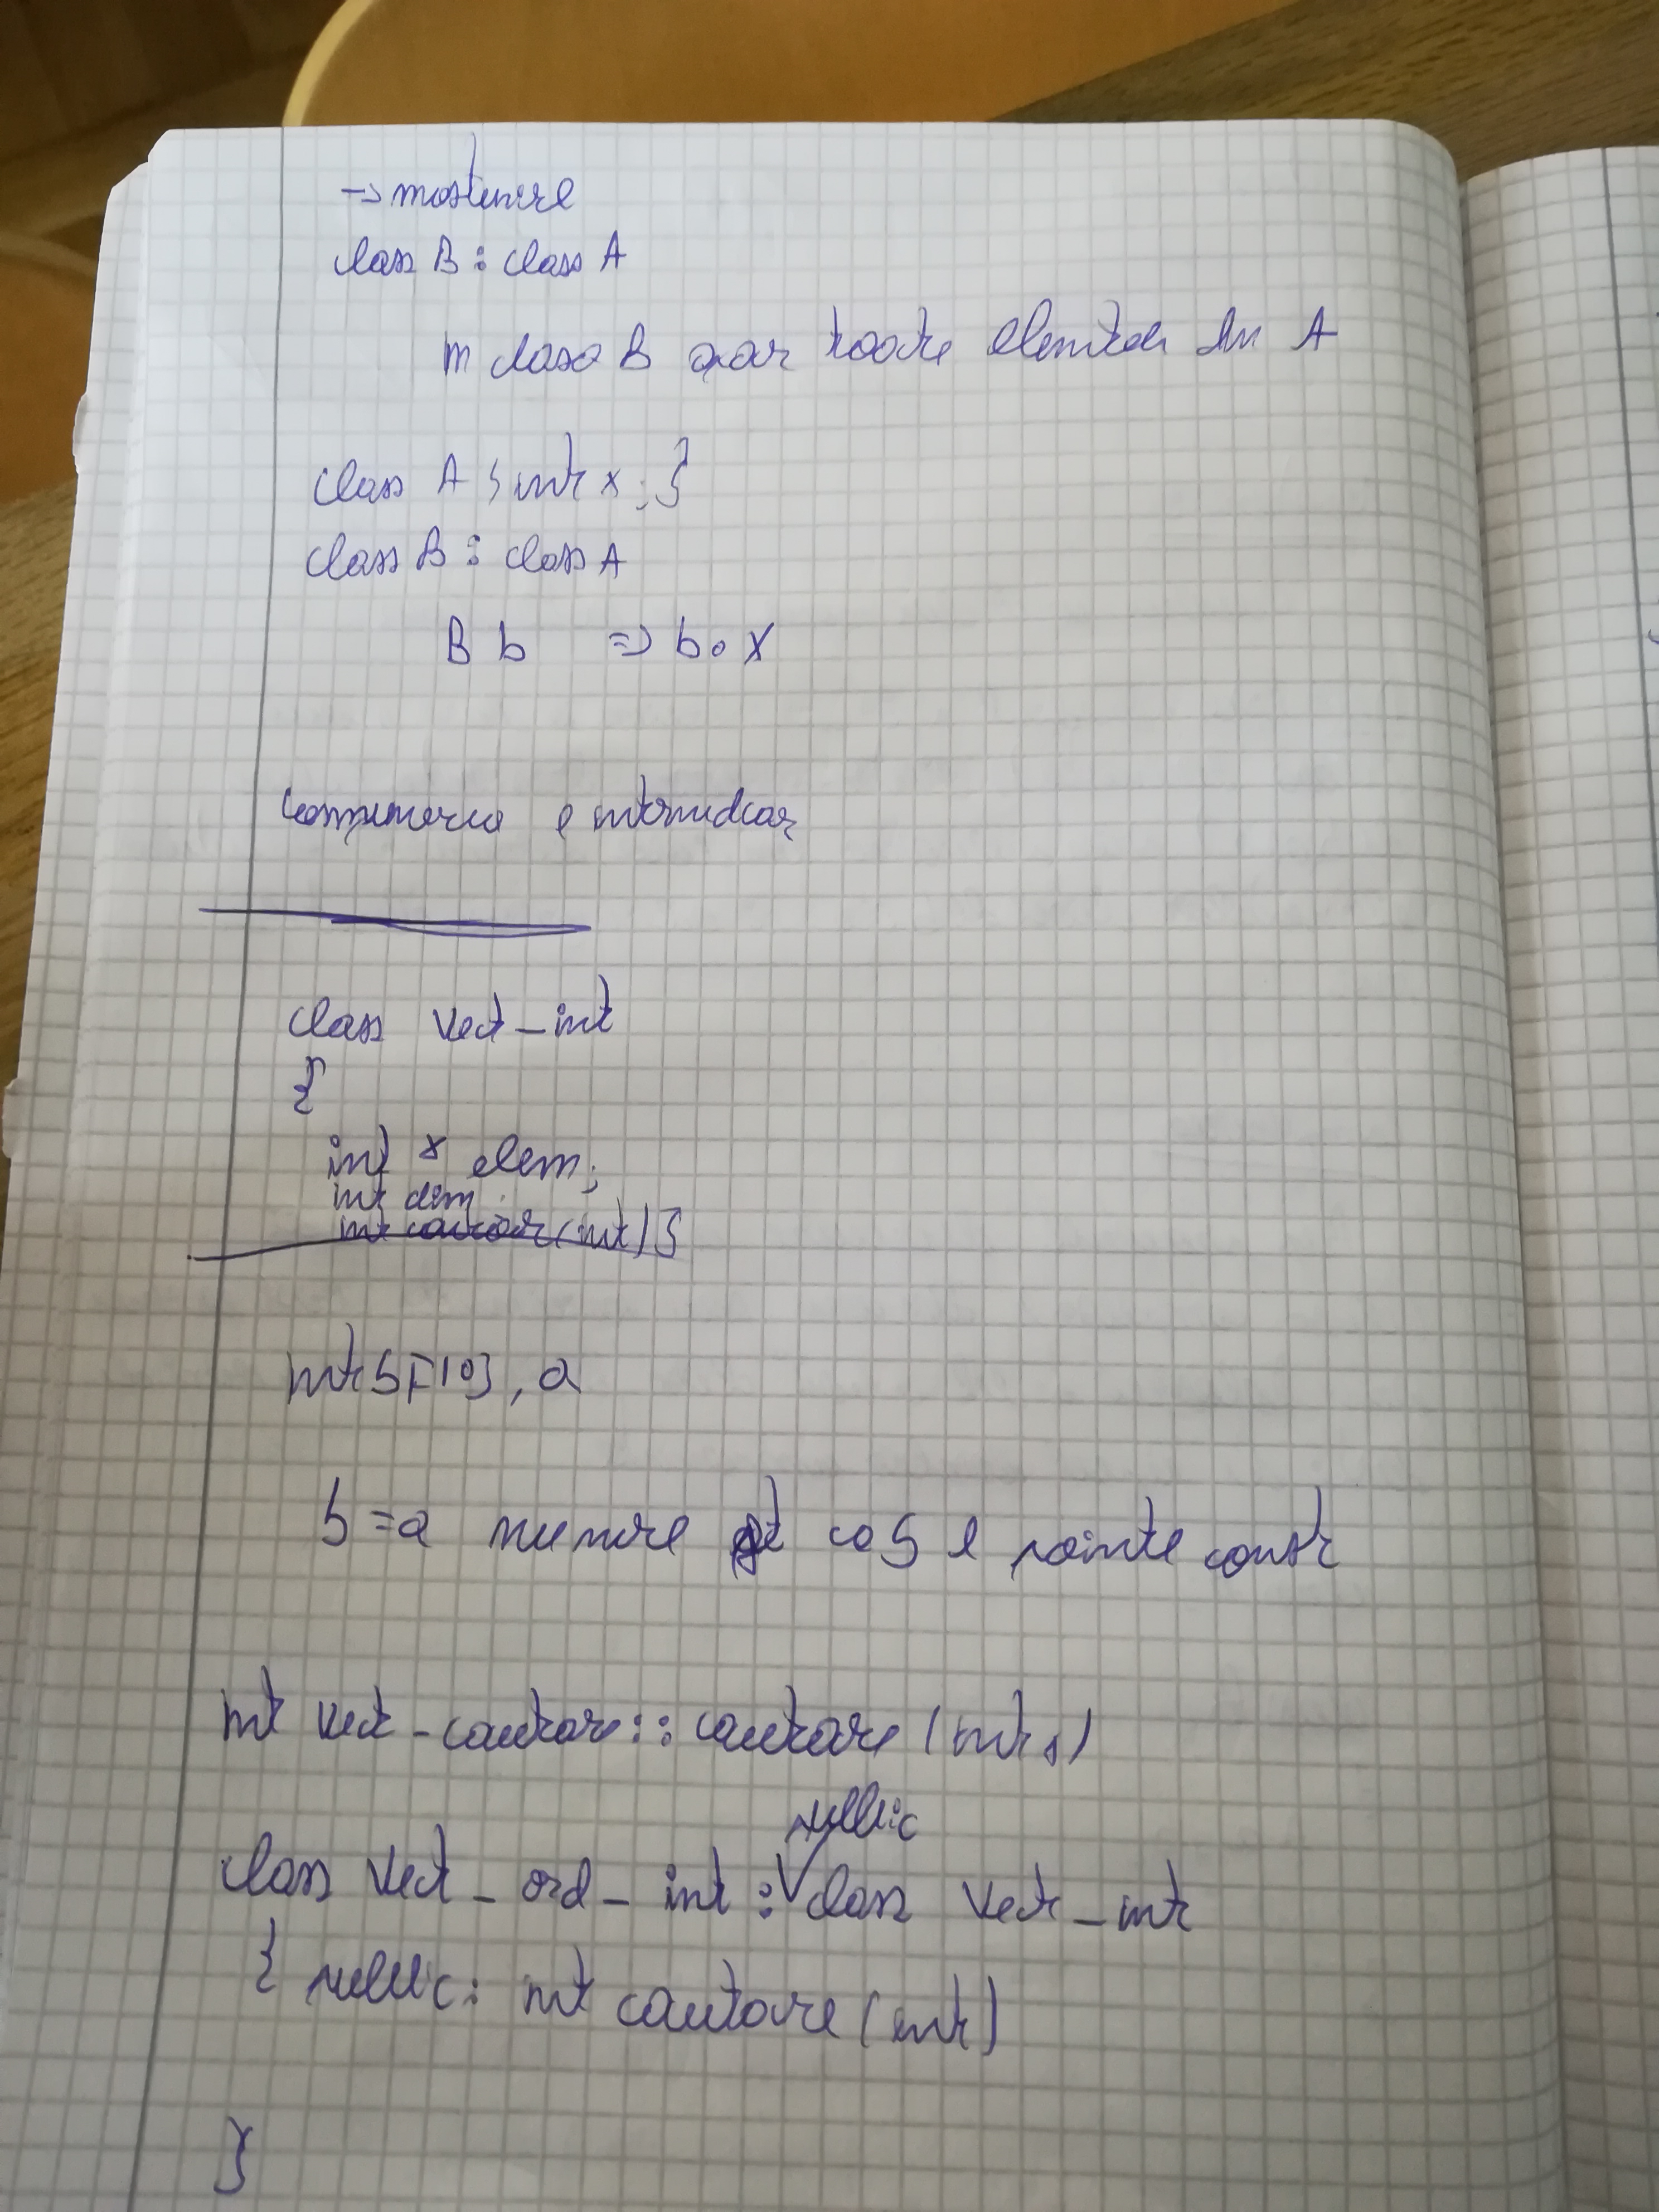 -> mostenire
class B : class A
in clasa B apar toate elementele din A
class A { int x ; }
class B : class A
B b => b . x
e intermediar
class Vect_int
{
int * elem;
int dim
int cautare (int) }
int b[10], a
b = a nu merge pt ca b e pointer const
int Vect_cautare :: cautare (int s)
public
class Vect_ord_int : class Vect_int
{ public : int cautare (int)
}